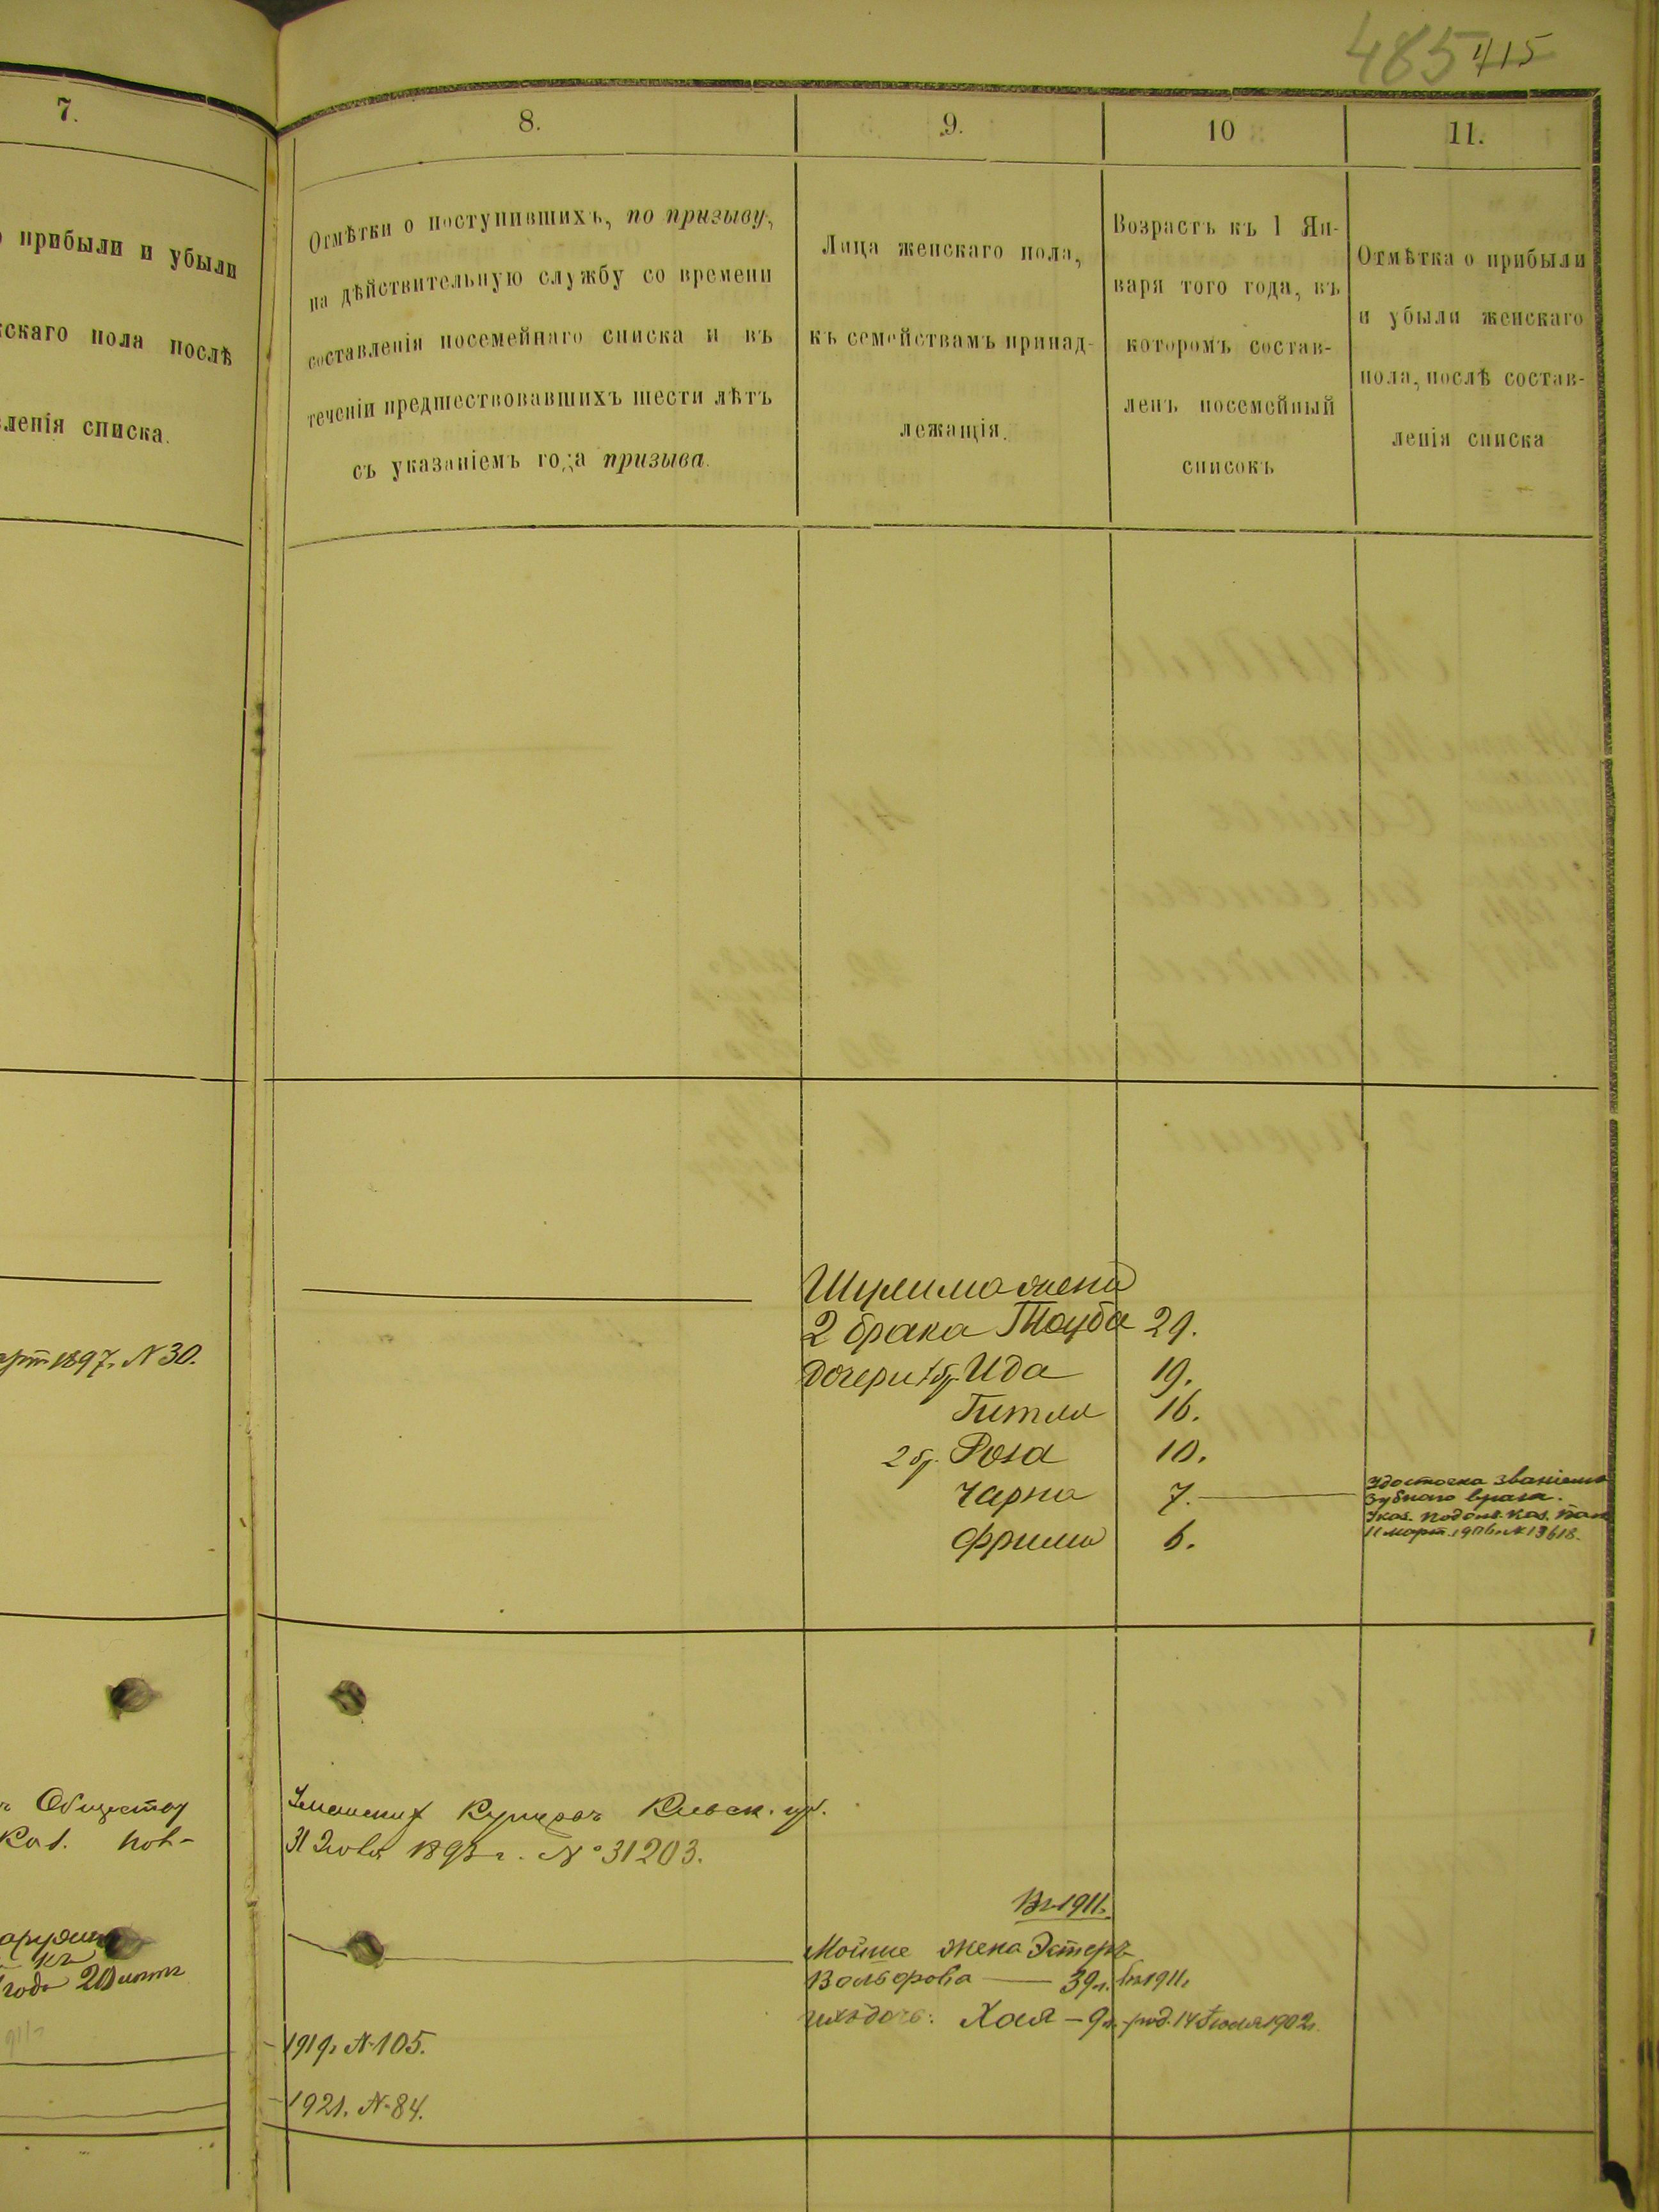 485 415
7.
8.
9.
10
11.
прибыли и убыли
скаго пола послѣ
ленія списка.
Отмѣтки о поступившихъ, по призыву,
на дѣйствительную службу со времени
составленія посемейнаго списка и въ
теченіи предшествовавшихъ шести лѣтъ
съ указаніемъ года призыва.
Лица женскаго пола,
къ семействамъ принад-
лежащія.
Возрастъ къ 1 Ян-
варя того года, въ
которомъ состав-
ленъ посемейный
списокъ
Отмѣтка о прибыли
и убыли женскаго
пола, послѣ состав-
ленія списка
Шулима жена
2 брака Тауба 29.
1897. N 30.
дочери 1 бр. Ида 19.
Гитля 16.
2 бр. Роза 10.
Чарна 7.
Фрима 6.
Удостоена званіемъ
Зубнаго врача.
Указ. Подол. Каз. Пал
11 март. N 13618.
Обществу
Каз. Пов-
Уманских Купцовъ Киевск. губ.
31 г. N° 31203.
къ
года 20
Въ 1911г.
Мойше жена Эстеръ
Вольфова — 39 л. въ 1911г.
ихъ дочь: Хая — 9 л. род. 14 Іюля 1902г.
1919г. N 105.
1921. N 84.